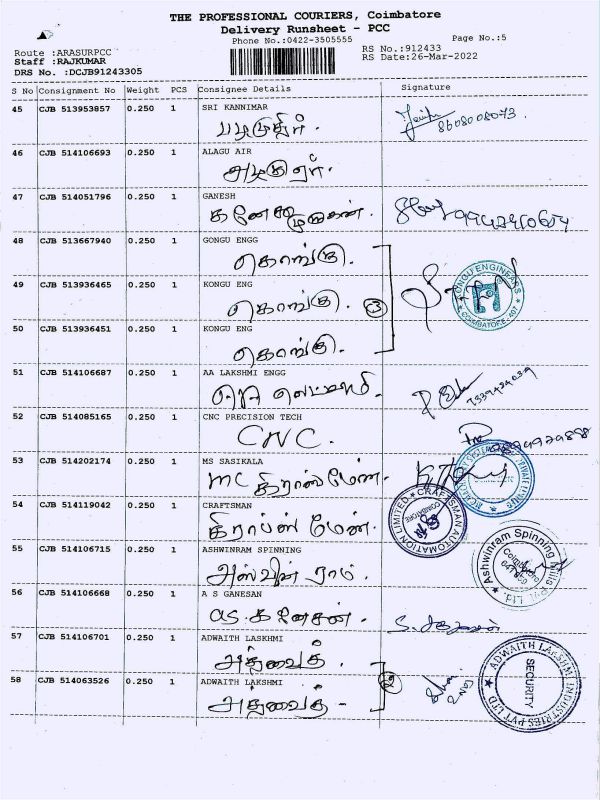 THE PROFESSIONAL COURIERS, Coimbatore
Delivery Runsheet - PCC
Phone No.:0422-3505555
Page No.:5
Route :ARASURPCC
RS No.:912433
Staff :RAJKUMAR
RS Date:26-Mar-2022
DRS No. :DCJB91243305
S No Consignment No Weight PCS Consignee Details Signature
45 CJB 513953857 0.250 1 SRI KANNIMAR
8608008073
46 CJB 514106693 0.250 1 ALAGU AIR
47 CJB 514051796 0.250 1 GANESH
48 CJB 513667940 0.250 1 GONGU ENGG
கொங்கு.
49 CJB 513936465 0.250 1 KONGU ENG
கொங்கு. 3
KONGU ENGINEERS COIMBATORE
50 CJB 513936451 0.250 1 KONGU ENG
கொங்கு.
51 CJB 514106687 0.250 1 AA LAKSHMI ENGG
52 CJB 514085165 0.250 1 CNC PRECISION TECH
CNC.
53 CJB 514202174 0.250 1 MS SASIKALA
54 CJB 514119042 0.250 1 CRAFTSMAN
CRAFTSMAN AUTOMATION LIMITED COIMBATORE
55 CJB 514106715 0.250 1 ASHWINRAM SPINNING
அஸ்வின் ராம்.
Ashwinram Spinning Mills Pvt. Ltd. Coimbatore
56 CJB 514106668 0.250 1 A S GANESAN
as. கனேசன்.
57 CJB 514106701 0.250 1 ADWAITH LASKHMI
அத்வைத்.
58 CJB 514063526 0.250 1 ADWAITH LAKSHMI
அத்வைத் -
ADWAITH LAKSHMI INDUSTRIES PVT LTD SECURITY